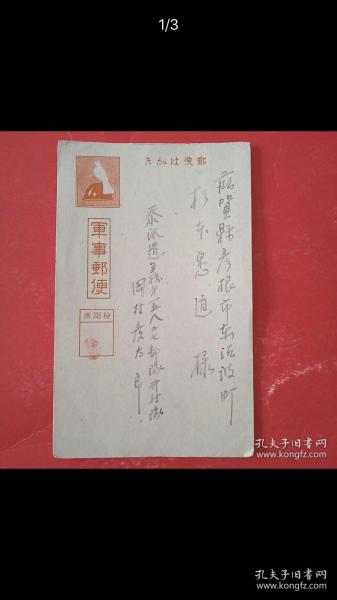 1/3
郵便はがき
軍事郵便
検閲済
滋賀縣彦根市東沼波町
杉本恵迪様
泰派遣義第一五八〇七部隊井村隊
岡村彦太郎
孔夫子旧书网
www.kongfz.com
孔夫子旧书网
www.kongfz.com